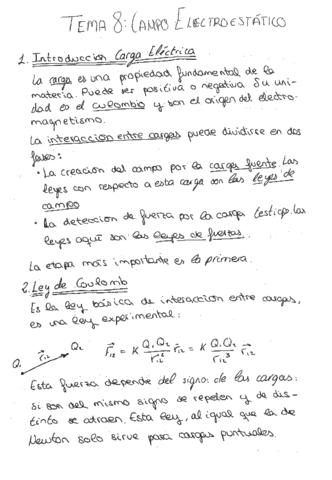 TEMA 8: CAMPO ELECTROESTÁTICO
1. Introduccion Carga Eléctrica
La carga es una propiedad fundamental de la
materia. Puede ser positiva o negativa. Su uni-
dad es el culombio y son el origen del electro-
magnetismo.
La interacción entre cargas puede dividirse en dos
fases:
• La creación del campo por la carga fuente. Las
leyes con respecto a esta carga son las leyes de
campo
• La detección de fuerza por la carga testigo. Las
leyes aquí son las leyes de fuerzas.
La etapa más importante es la primera.
2. Ley de Coulomb
Es la ley básica de interacción entre cargas,
es una ley experimental:
Q₁ r⃗₁₂ Q₂ F⃗₁₂ = K Q₁Q₂/r₁₂² r̂₁₂ = K Q₁Q₂/r₁₂³ r⃗₁₂
Esta fuerza depende del signo de las cargas:
si son del mismo signo se repelen y de dis-
tinto se atraen. Esta ley, al igual que la de
Newton solo sirve para cargas puntuales.